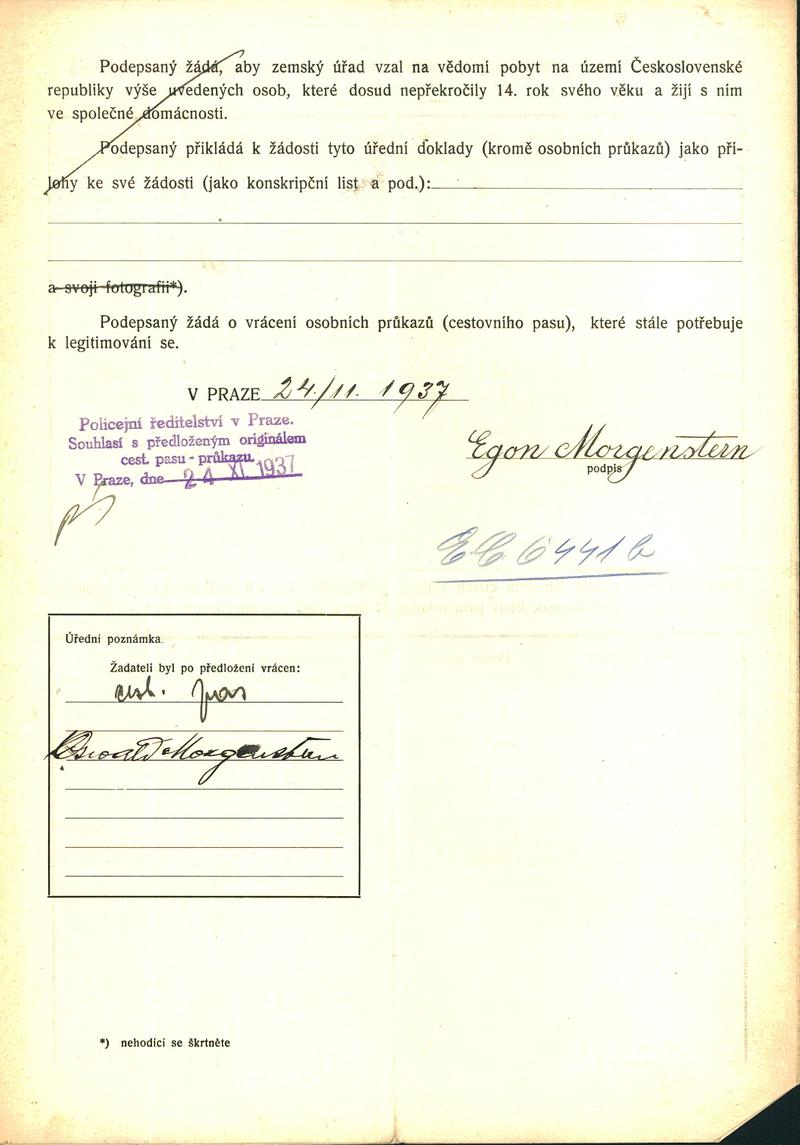 Podepsaný žádá, aby zemský úřad vzal na vědomí pobyt na území Československé
republiky výše uvedených osob, které dosud nepřekročily 14. rok svého věku a žijí s ním
ve společné domácnosti.
Podepsaný přikládá k žádosti tyto úřední doklady (kromě osobních průkazů) jako pří-
lohy ke své žádosti (jako konskripční list a pod.):
a svoji fotografii*).
Podepsaný žádá o vrácení osobních průkazů (cestovního pasu), které stále potřebuje
k legitimování se.
V PRAZE 24/11. 1937
Policejní ředitelství v Praze.
Souhlasí s předloženým originálem
cest. pasu - průkazu
V Praze, dne 24 XI. 1937
Egon Morgenstern
podpis
Úřední poznámka.
Žadateli byl po předložení vrácen:
cest. pas
Oswald Morgenstern
*) nehodící se škrtněte